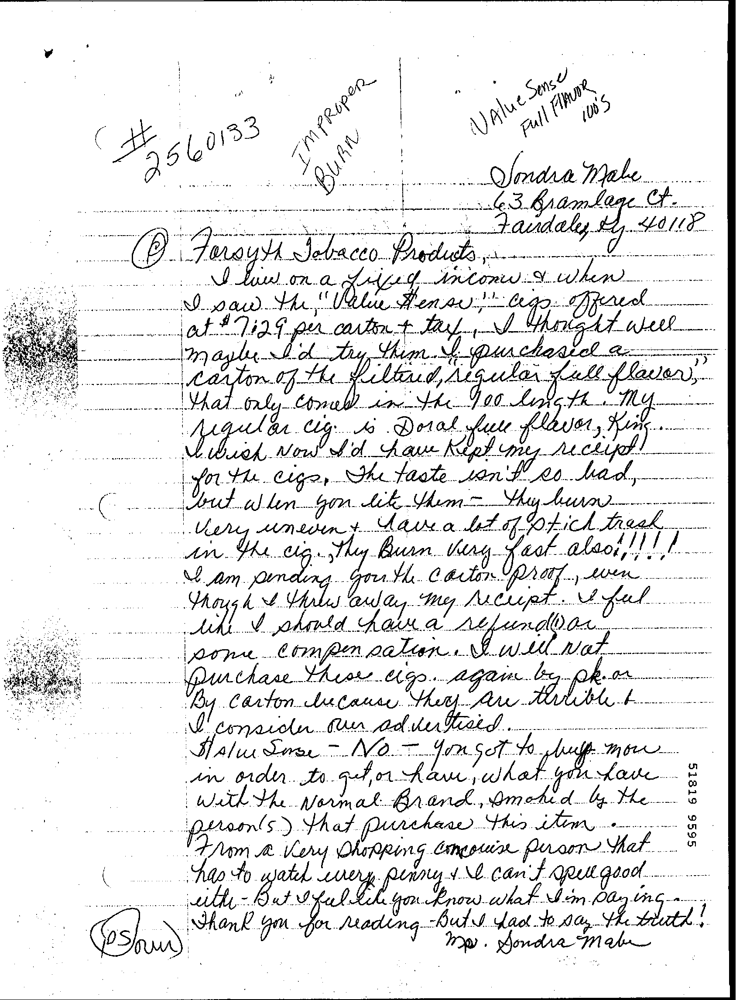 # 2560133
IMPROPER
BURN
VALUE Sense
Full FlAVOR
100'S
Sondra Mabe
63 Bramlage Ct.
Fairdale, Ky 40118
P Forsyth Tobacco Products,
I live on a fixed income & when
I saw the, "Value Sense," cigs offered
at $7.29 per carton + tax, I thought well
maybe I'd try them. I purchased a
carton of the filtered, "regular full flavor,"
that only comes in the 100 length. My
regular cig. is Doral full flavor, King.
I wish Now I'd have Kept my receipt
for the cigs. The taste isn't so bad,
but when you lite them - they burn
very uneven + have a lot of stick trash
in the cig., they Burn Very fast also!!!!!
I am sending you the carton proof, even
though I threw away my receipt. I feel
like I should have a refund(s) or
some compensation. I will not
purchase these cigs. again by pk. or
By carton because they are terrible &
I consider over advertised.
Value Sense - No - you got to buy more
in order to get, or have, what you have
with the Normal Brand, smoked by the
person(s) that purchase this item.
From a very shopping concouise person that
has to watch every penny + I can't spell good
eithe - But I feel like you know what I'm saying.
Thank you for reading - But I had to say the truth!
Sondra Mabe
(PS over)
51819 9595